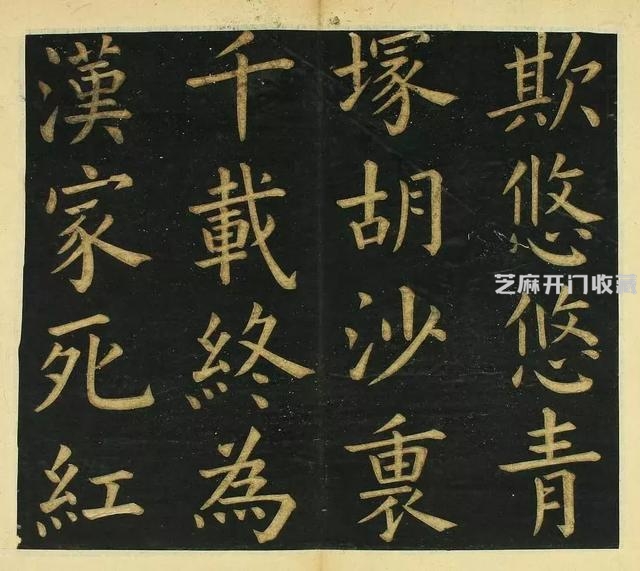 欺悠悠青
塚胡沙裏
千載終為
漢家死紅
芝麻开门收藏